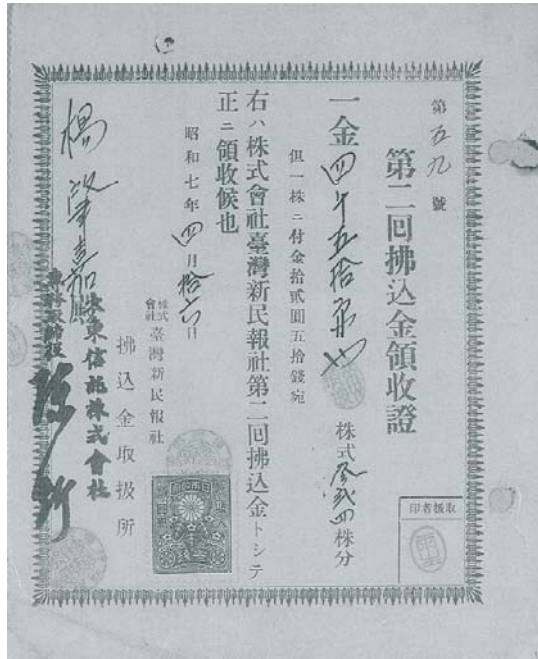 第五九號
第二回拂込金領收證
一金四千五拾円也 株式参弐四株分
但一株ニ付金拾貳圓五拾錢宛
右ハ株式會社臺灣新民報社第二回拂込金トシテ
正ニ領收候也
昭和七年四月拾六日
株式會社臺灣新民報社
拂込金取扱所
大東信託株式會社
專務取締役 陳炘
楊肇嘉殿
取扱者印